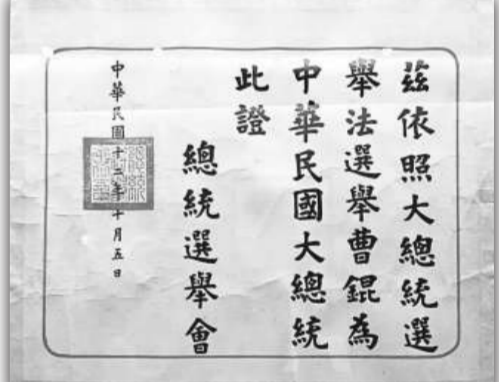 茲依照大總統選
舉法選舉曹錕為
中華民國大總統
此證
總統選舉會
中華民國十二年十月五日